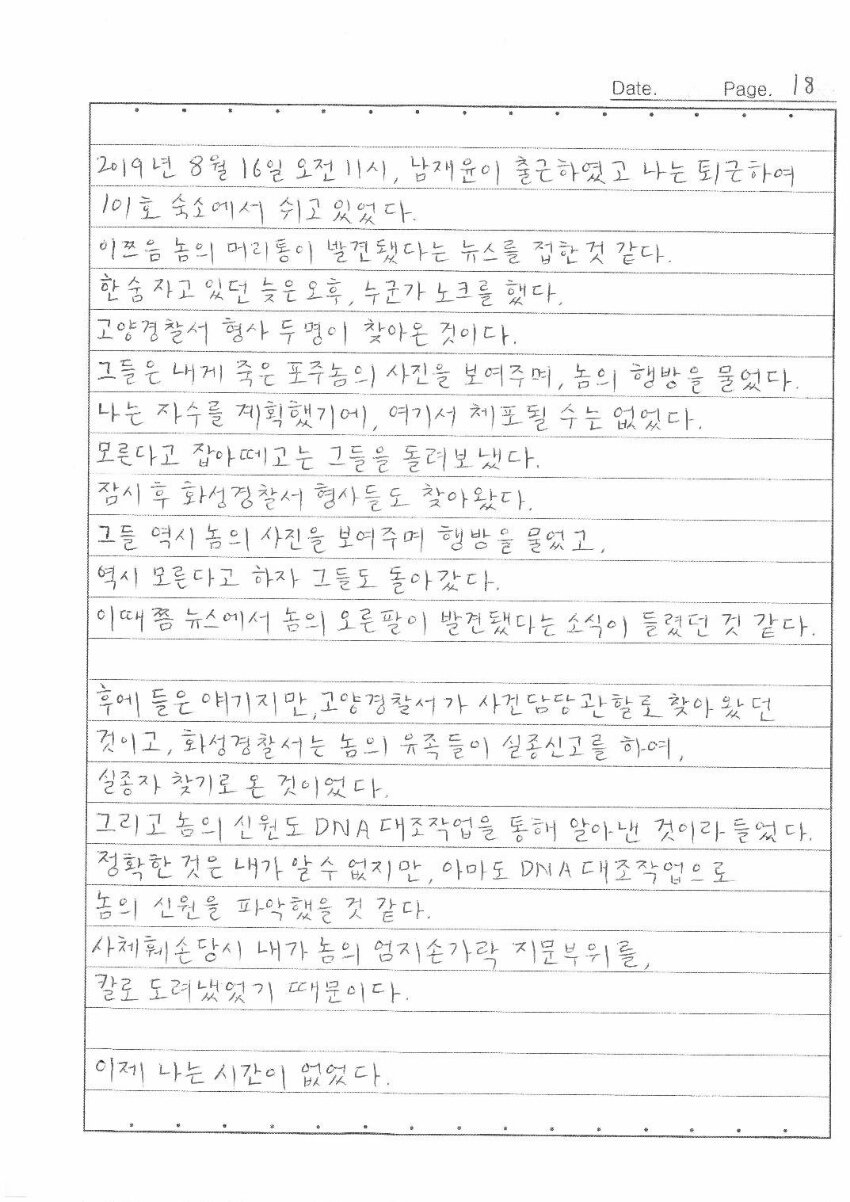 Date. Page. 18
2019년 8월 16일 오전 11시, 남재윤이 출근하였고 나는 퇴근하여
101호 숙소에서 쉬고 있었다.
이쯔음 놈의 머리통이 발견됐다는 뉴스를 접한것 같다.
한숨 자고 있던 늦은 오후, 누군가 노크를 했다.
고양경찰서 형사 두명이 찾아온 것이다.
그들은 내게 죽은 포주놈의 사진을 보여주며, 놈의 행방을 물었다.
나는 자수를 계획했기에, 여기서 체포될 수는 없었다.
모른다고 잡아떼고는 그들을 돌려보냈다.
잠시 후 화성경찰서 형사들도 찾아왔다.
그들 역시 놈의 사진을 보여주며 행방을 물었고,
역시 모른다고 하자 그들도 돌아갔다.
이때쯤 뉴스에서 놈의 오른팔이 발견됐다는 소식이 들렸던 것 같다.
후에 들은 얘기지만, 고양경찰서가 사건담당관할로 찾아 왔던
것이고, 화성경찰서는 놈의 유족들이 실종신고를 하여,
실종자 찾기로 온 것이었다.
그리고 놈의 신원도 DNA 대조작업을 통해 알아낸 것이라 들었다.
정확한 것은 내가 알 수 없지만, 아마도 DNA 대조작업으로
놈의 신원을 파악했을 것 같다.
사체훼손당시 내가 놈의 엄지손가락 지문부위를,
칼로 도려냈었기 때문이다.
이제 나는 시간이 없었다.